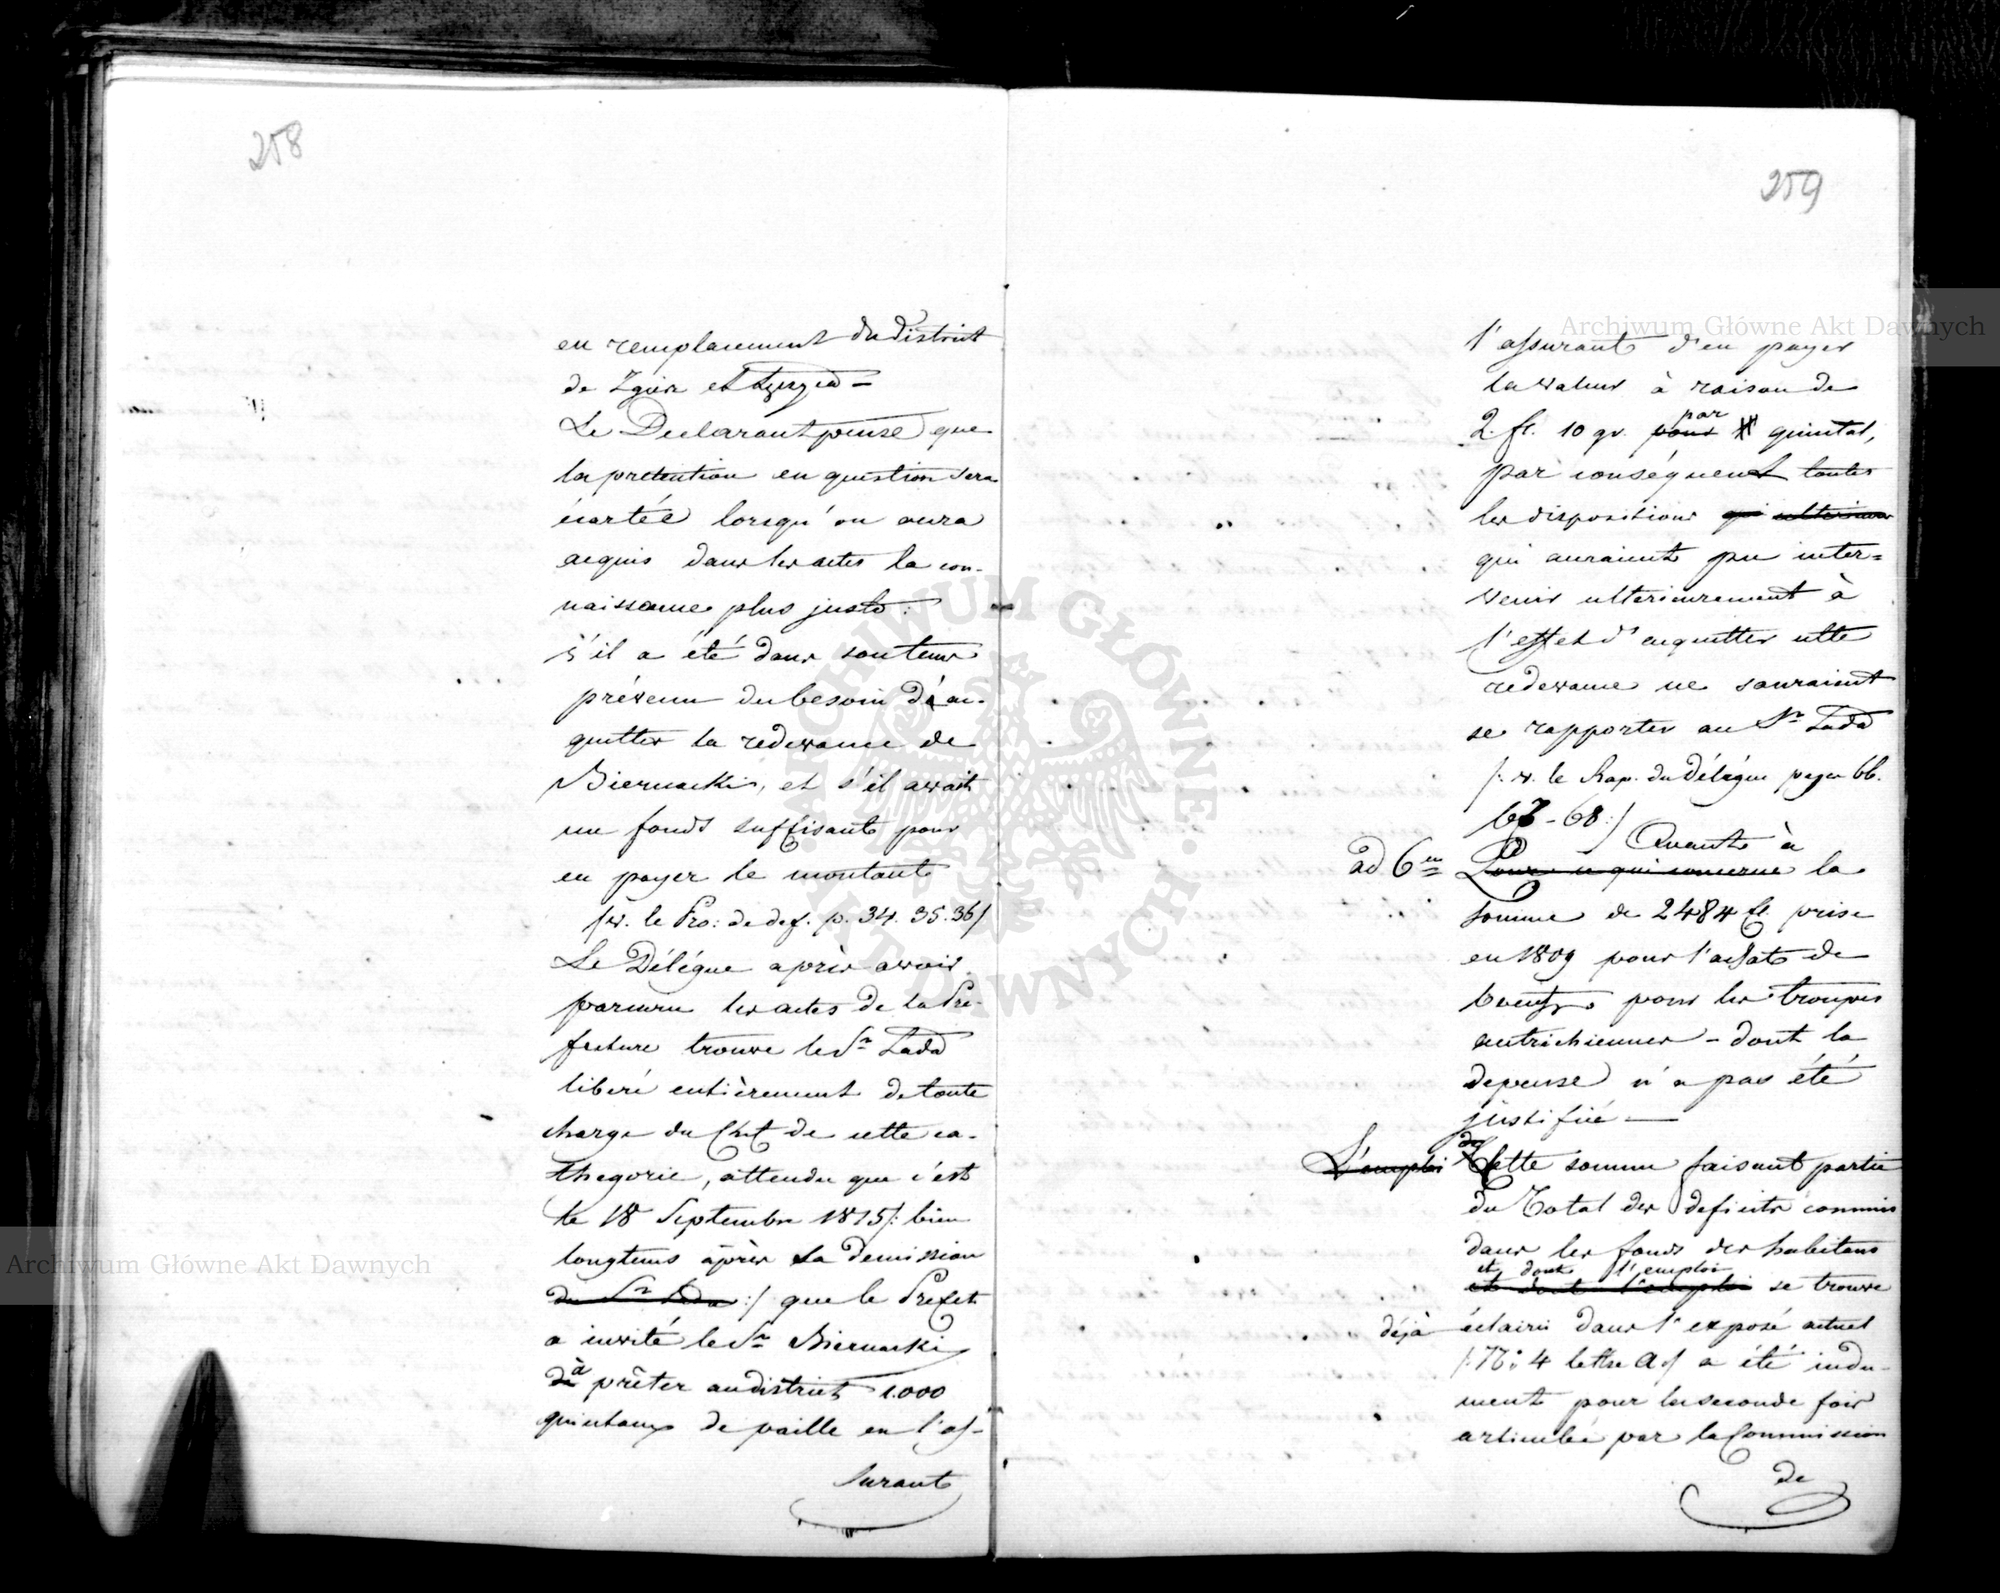 258
en remplacement du district
de Zgierz et
Le Declarant pense que
la pretention en question sera
écartée lorsqu'on aura
acquis dans les actes la con-
naissance plus juste:
s'il a été dans son tems
prévenu du besoin d'ac-
quitter la redevance de
Biernacki, et s'il avait
un fonds suffisant pour
en payer le montant
/v. le Pro: de def. p. 34. 35. 36/
Le Délégue après avoir
parcuru les actes de la Pré-
fecture trouve le Sr Lada
liberé entièrement de toute
charge du Chef de cette ca-
thegorie, attendu que c'est
le 18 Septembre 1815/: bien
longtems après sa demission
du Sr Lada :/ que le Préfet
a invité le Sr Biernacki
de à prêter au district 1.000
quintaux de paille en l'as-
surant
259
l'assurant d'en payer
la valeur à raison de
2. fl. 10 gr. par
pour quintal,
par conséquent toutes
les dispositions qui ulterieur
qui auraient pu inter=
venir ulterieurement à
l'effet d'acquitter cette
redevance ne sauraient
se rapporter au Sr Lada
/: v. le Rap. du Délégue pages 66.
67 - 68 :/
Quant à
ad 6m Pour ce qui concerne la
somme de 2484 fl. prise
en 1809 pour l'achat de
boeufs pour les troupes
autrichiennes - dont la
depense n'a pas été
justifiée —
L'emploi de Cette somme faisant partie
du Total des deficits commis
dans les fonds des habitans
et dont l'emploi
et dont l'emploi se trouve
déjà éclairci dans l'exposé actuel
/: N: 4 lettre A :/ a été indu-
ment pour la seconde fois
articulée par la Commission
de
Archiwum Główne Akt Dawnych
Archiwum Główne Akt Dawnych
ARCHIWUM GŁÓWNE AKT DAWNYCH